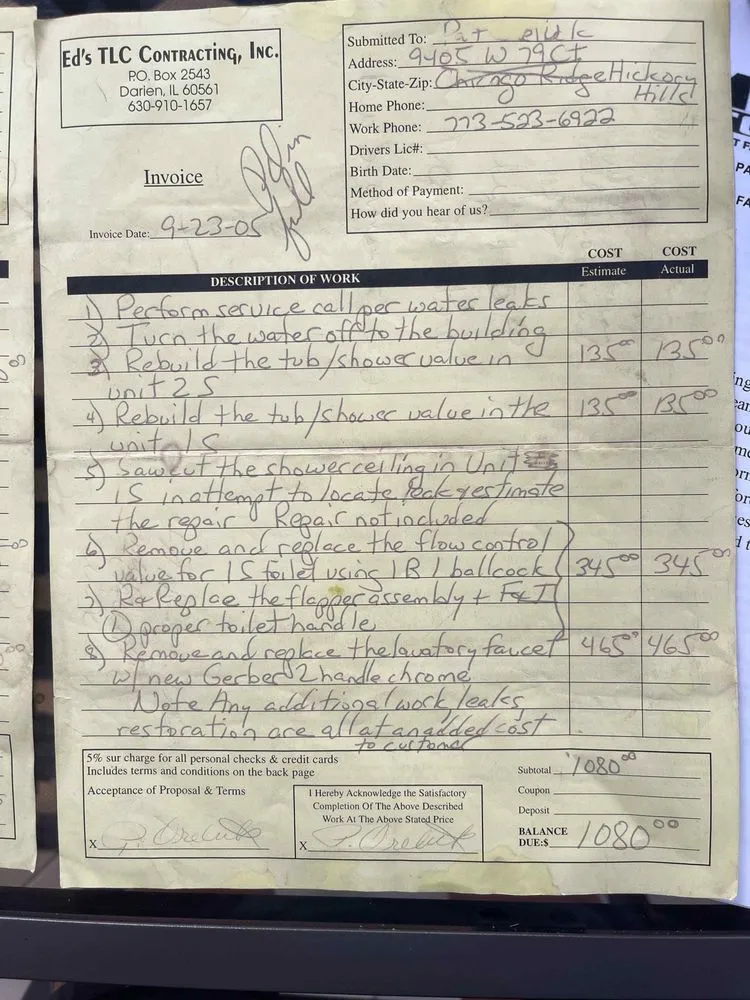 Ed's TLC Contracting, Inc.
P.O. Box 2543
Darien, IL 60561
630-910-1657
Invoice
Invoice Date: 9-23-05
Submitted To: Pat
Address: 9405 W 79 Ct
City-State-Zip: Chicago Ridge Hickory
Hills
Home Phone:
Work Phone: 773-523-6922
Drivers Lic#:
Birth Date:
Method of Payment:
How did you hear of us?
COST COST
DESCRIPTION OF WORK Estimate Actual
1) Perform service call per water leaks
2) Turn the water off to the building
3) Rebuild the tub/shower valve in 135 00 135 00
unit 2S
4) Rebuild the tub/shower valve in the 135 00 135 00
unit 1S
5) Sawcut the shower ceiling in Unit
1S in attempt to locate leak & estimate
the repair Repair not included
6) Remove and replace the flow control
valve for 1S toilet using 1R1 ballcock 345 00 345 00
7) R&Replace the flapper assembly + F&I
(1) proper toilet handle
8) Remove and replace the lavatory faucet 465 00 465 00
w/ new Gerber 2 handle chrome
Note Any additional work, leaks,
restoration are all at an added cost
to customer
5% sur charge for all personal checks & credit cards
Includes terms and conditions on the back page
Acceptance of Proposal & Terms
X
I Hereby Acknowledge the Satisfactory
Completion Of The Above Described
Work At The Above Stated Price
X
Subtotal 1080 00
Coupon
Deposit
BALANCE
DUE:$ 1080 00